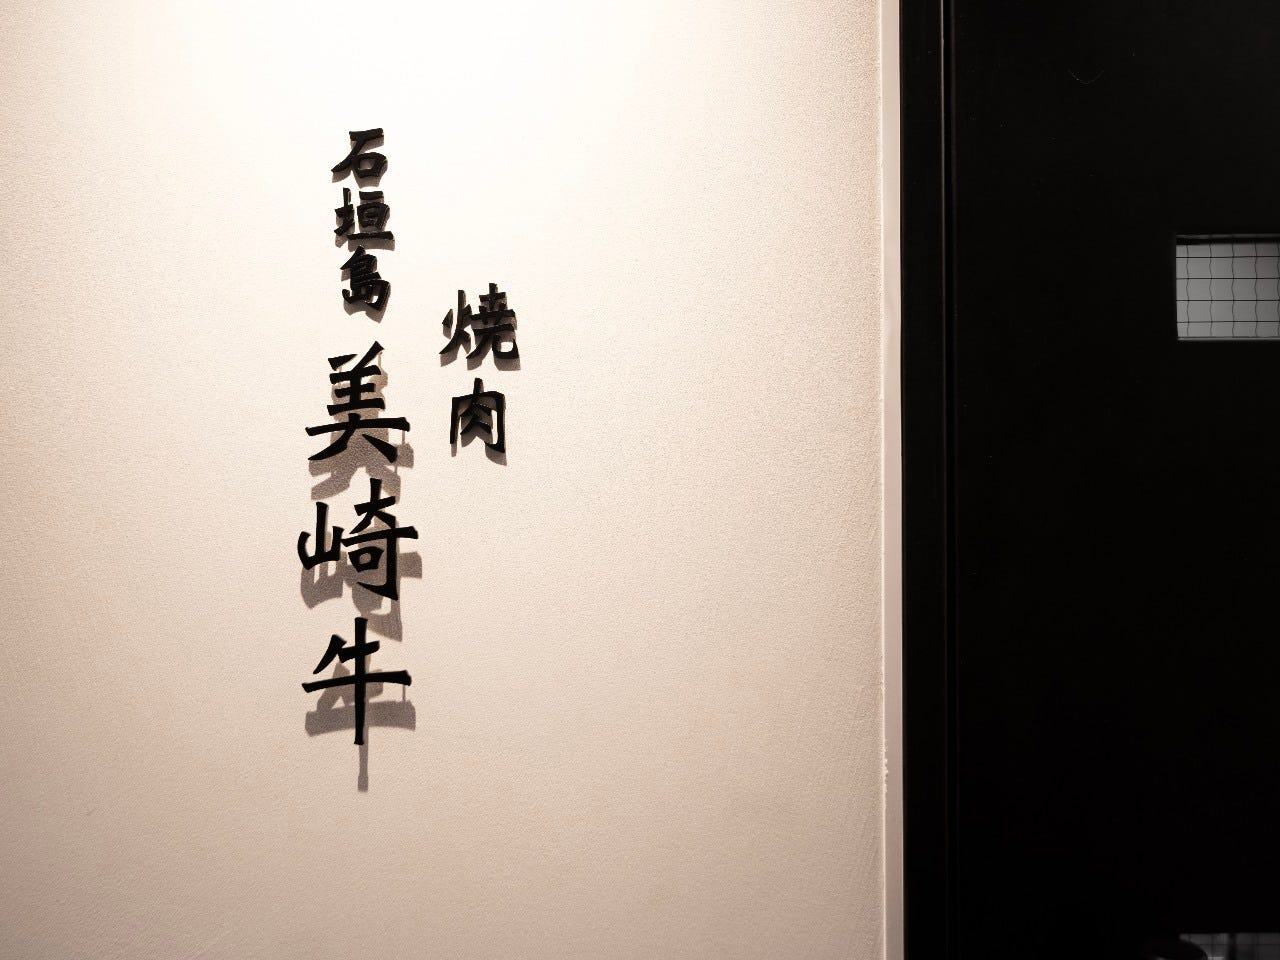 焼肉
石垣島 美崎牛